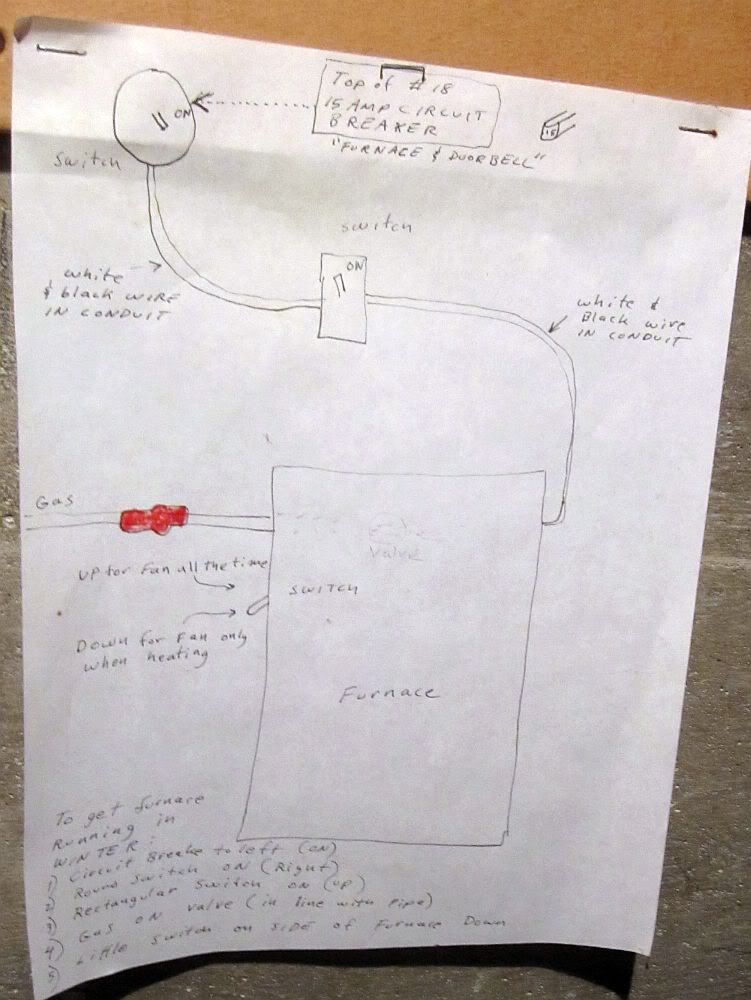 Top of # 18
15 AMP CIRCUIT
BREAKER
"FURNACE & DOORBELL"
15
ON
Switch
switch
ON
white
& black WIRE
IN CONDUIT
white &
Black wire
IN CONDUIT
Gas
Valve
UP for Fan all the time
SWITCH
Down for Fan only
when heating
Furnace
To get furnace
Running in
WINTER:
1) Circuit Breake to left (ON)
2) Round Switch ON (Right)
3) Rectangular Switch ON (UP)
4) Gas ON valve (in line with pipe)
5) Little switch on side of Furnace Down